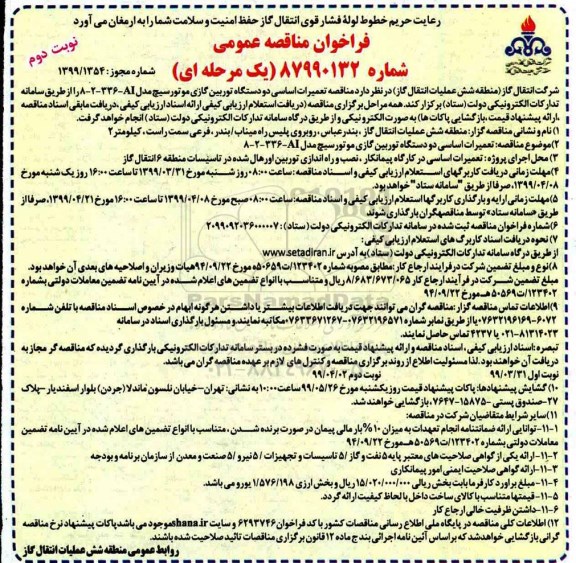 رعایت حریم خطوط لولهٔ فشار قوی انتقال گاز حفظ امنیت و سلامت شما را به ارمغان می آورد
نوبت دوم
فراخوان مناقصه عمومی
شماره ۸۷۹۹۰۱۳۲ (یک مرحله ای)
شماره مجوز: ۱۳۹۹/۱۳۵۴
شرکت انتقال گاز (منطقه شش عملیات انتقال گاز) در نظر دارد مناقصه تعمیرات اساسی دو دستگاه توربین گازی موتور سیچ مدل ۸-۲-۳۳۶-AI را از طریق سامانه
تدارکات الکترونیکی دولت (ستاد) برگزار کند. همه مراحل برگزاری مناقصه (دریافت استعلام ارزیابی کیفی ارائه اسناد ارزیابی کیفی، دریافت مابقی اسناد مناقصه
، ارائه پیشنهاد قیمت، بازگشایی پاکات ها) به صورت الکترونیکی و از طریق درگاه سامانه تدارکات الکترونیکی دولت (ستاد) انجام خواهد گرفت.
۱) نام و نشانی مناقصه گزار: منطقه شش عملیات انتقال گاز ، بندرعباس، روبروی پلیس راه میناب/بندر، فرعی سمت راست ، کیلومتر ۲
۲) موضوع مناقصه: تعمیرات اساسی دو دستگاه توربین گازی موتور سیچ مدل ۸-۲-۳۳۶-AI
۳) محل اجرای پروژه : تعمیرات اساسی در کارگاه پیمانکار ، نصب و راه اندازی توربین اورهال شده در تاسیسات منطقه ۶ انتقال گاز
۴) مهلت زمانی دریافت کاربرگهای استعلام ارزیابی کیفی و اسناد مناقصه: ساعت ۰۸:۰۰ روز شنبه مورخ ۱۳۹۹/۰۳/۳۱ تا ساعت ۱۶:۰۰ روز یک شنبه مورخ
۱۳۹۹/۰۴/۰۸، صرفا از طریق "سامانه ستاد" خواهد بود.
۵) مهلت زمانی ارایه و بارگذاری کاربرگها استعلام ارزیابی کیفی و اسناد مناقصه: ساعت ۰۸:۰۰ صبح مورخ ۱۳۹۹/۰۴/۰۸ تا ساعت ۱۶:۰۰ مورخ ۱۳۹۹/۰۴/۲۱، صرفا از
طریق «سامانه ستاد» توسط مناقصهگران بارگذاری شوند
۶) شماره فراخوان مناقصه ثبت شده در سامانه تدارکات الکترونیکی دولت (ستاد) : ۲۰۹۹۰۹۲۰۳۶۰۰۰۰۰۷
۷) نحوه دریافت اسناد کاربرگ های استعلام ارزیابی کیفی :
از طریق درگاه سامانه تدارکات الکترونیکی دولت (ستاد) به آدرس www.setadiran.ir
۸) نوع و مبلغ تضمین شرکت در فرآیند ارجاع کار: مطابق مصوبه شماره ۱۲۳۴۰۲/ت۵۰۶۵۹ه مورخ ۹۴/۰۹/۲۲ هیات وزیران و اصلاحیه های بعدی آن خواهد بود.
مبلغ تضمین شرکت در فرآیند ارجاع کار ۸/۶۸۳/۶۷۳/۰۶۵ ریال و متناسب با انواع تضمین های اعلام شده در آیین نامه تضمین معاملات دولتی بشماره
۱۲۳۴۰۲/ت۵۰۵۶۹ه مورخ ۹۴/۰۹/۲۲
۹) اطلاعات تماس مناقصه گزار: مناقصه گران می توانند جهت دریافت اطلاعات بیشتر یا داشتن هرگونه ابهام در خصوص اسناد مناقصه با تلفن شماره
۰۷۶۳۲۱۹۶۱۶۹-۶۰۷۲ و ۰۷۶۳۲۱۹۶۵۷۱ یا از طریق نمابر شماره ۰۷۶۳۳۶۷۱۲۶۷ مکاتبه نمایند و مسئول بارگذاری اسناد در سامانه
۰۲۱-۸۱۳۱۴۰۲۳ یا ۴۲۳۷ تماس حاصل نمایند.
تبصره: اسناد ارزیابی کیفی ، اسناد مناقصه و ارائه پیشنهاد قیمت به صورت فشرده در بستر سامانه تدارکات الکترونیکی بارگذاری گردیده که مناقصه گر مجاز به
دریافت آن خواهند بود. لذا مسئولیت اطلاع از روند برگزاری مناقصه و کنترل های لازم بر عهده مناقصه گران می باشد.
نوبت اول ۹۹/۰۳/۳۱ نوبت دوم ۹۹/۰۴/۰۲
۱۰) گشایش پیشنهادها: پاکات پیشنهاد قیمت روز یکشنبه مورخ ۹۹/۰۵/۲۶ ساعت ۱۰:۰۰ به نشانی: تهران-خیابان نلسون ماندلا (جردن) بلوار اسفندیار -پلاک
۲۷-صندوق پستی -۱۵۸۷۵-۷۶۴۷، بازگشایی خواهند شد.
۱۱) سایر شرایط متقاضیان شرکت در مناقصه:
۱۱-۱-توانایی ارائه ضمانتنامه انجام تعهدات به میزان ۱۰% بار مالی پیمان در صورت برنده شدن ، متناسب با انواع تضمین های اعلام شده در آیین نامه تضمین
معاملات دولتی بشماره ۱۲۳۴۰۲/ت۵۰۵۶۹ه مورخ ۹۴/۰۹/۲۲
۱۱-۲-ارائه یکی از گواهی صلاحیت های معتبر پایه ۵ نفت و گاز /۵ تاسیسات و تجهیزات /۵ نیرو /۵ صنعت و معدن از سازمان برنامه و بودجه
۱۱-۳-ارائه گواهی صلاحیت ایمنی امور پیمانکاری
۱۱-۴-مبلغ برآورد کارفرما بابت بخش ریالی ۱۵/۰۲۰/۰۰۰/۰۰۰ ریال و بخش ارزی ۱/۵۷۶/۱۹۸ یورو می باشد.
۱۱-۵-قیمتها متناسب با کالای ساخت داخل با لحاظ کیفیت ارائه گردد.
۱۱-۶-داشتن ظرفیت خالی ارجاع کار
۱۲) اطلاعات کلی مناقصه در پایگاه ملی اطلاع رسانی مناقصات کشور با کد فراخوان ۶۲۹۳۷۴۶ و سایت shana.ir موجود می باشد، پاکات پیشنهاد نرخ مناقصه
گرانی بازگشایی خواهد شد که بر اساس آئین نامه اجرائی بند ج ماده ۱۲ قانون برگزاری مناقصات تائید صلاحیت شده باشند.
روابط عمومی منطقه شش عملیات انتقال گاز